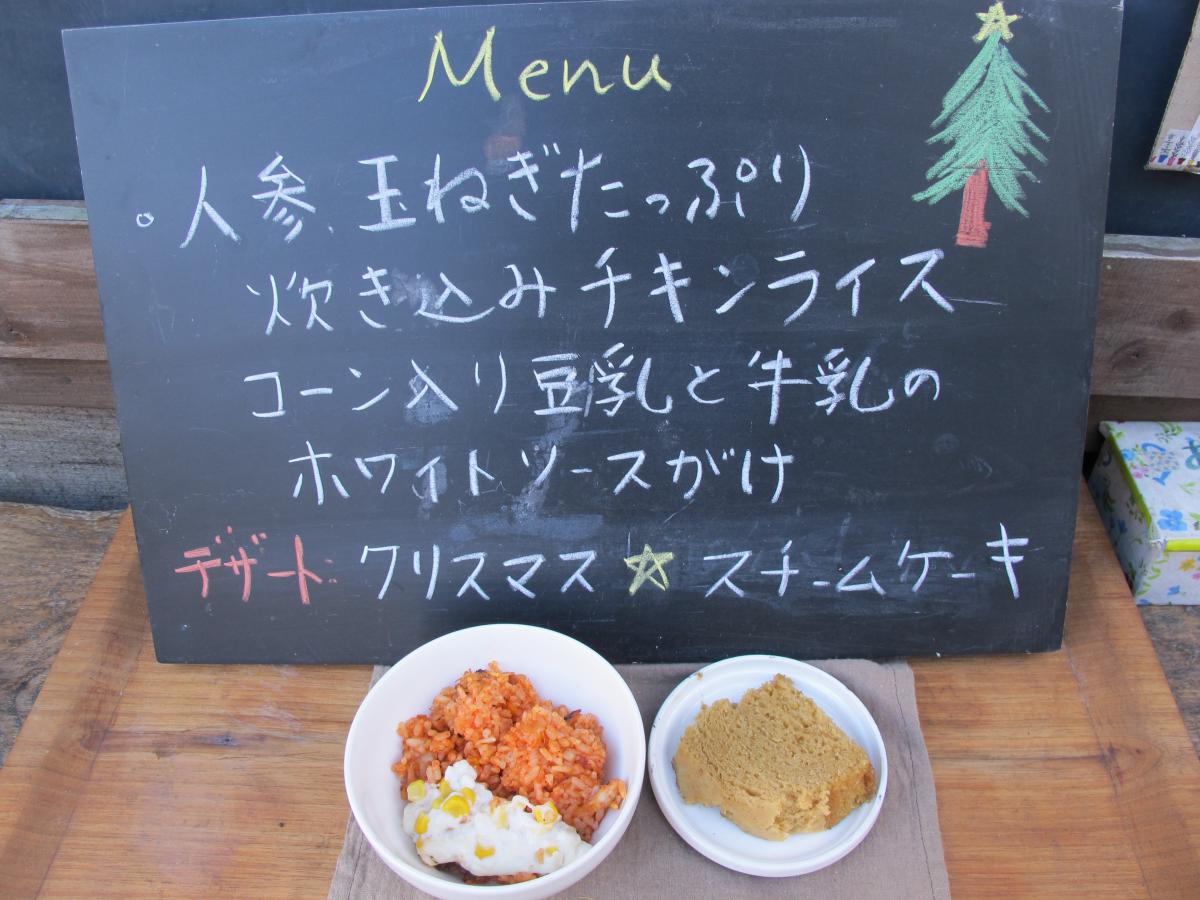 Menu
。人参、玉ねぎたっぷり
炊き込みチキンライス
コーン入り豆乳と牛乳の
ホワイトソースがけ
デザート: クリスマス☆スチームケーキ